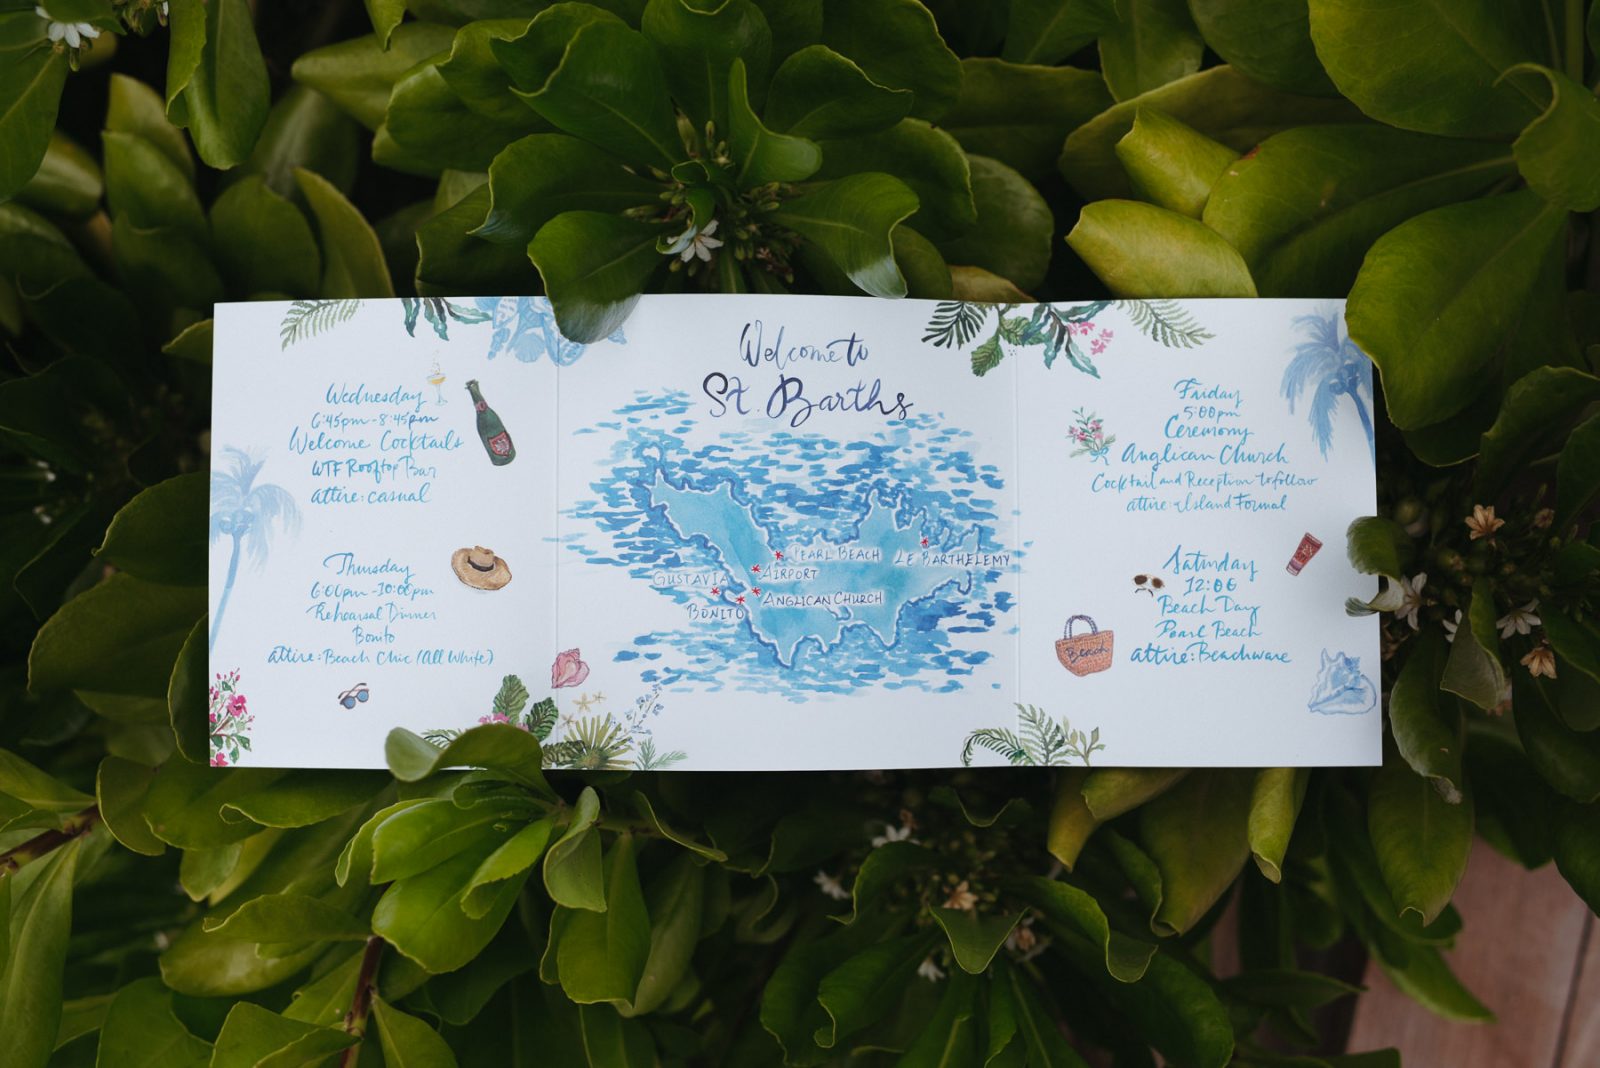 Wednesday
6:45pm-8:45pm
Welcome Cocktails
WTF Rooftop Bar
attire: casual
Thursday
6:00pm-10:00pm
Rehearsal Dinner
Bonito
attire: Beach Chic (All White)
Welcome to
St. Barths
PEARL BEACH
LE BARTHELEMY
AIRPORT
GUSTAVIA
ANGLICAN CHURCH
BONITO
Friday
5:00pm
Ceremony
Anglican Church
Cocktail and Reception to follow
attire: Island Formal
Saturday
12:00
Beach Day
Pearl Beach
attire: Beachware
Beach